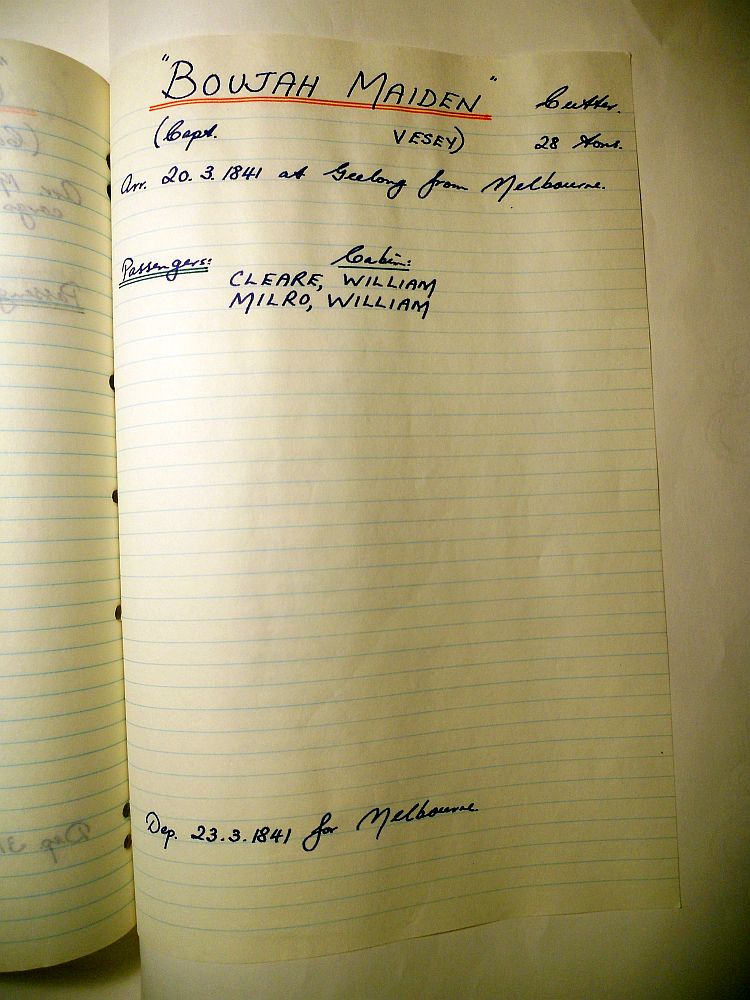 "BOUJAH MAIDEN" Cutter.
(Capt. VESEY) 28 Tons.
Arr. 20.3.1841 at Geelong from Melbourne.
Passengers: Cabin:
CLEARE, WILLIAM
MILRO, WILLIAM
Dep. 23.3.1841 for Melbourne